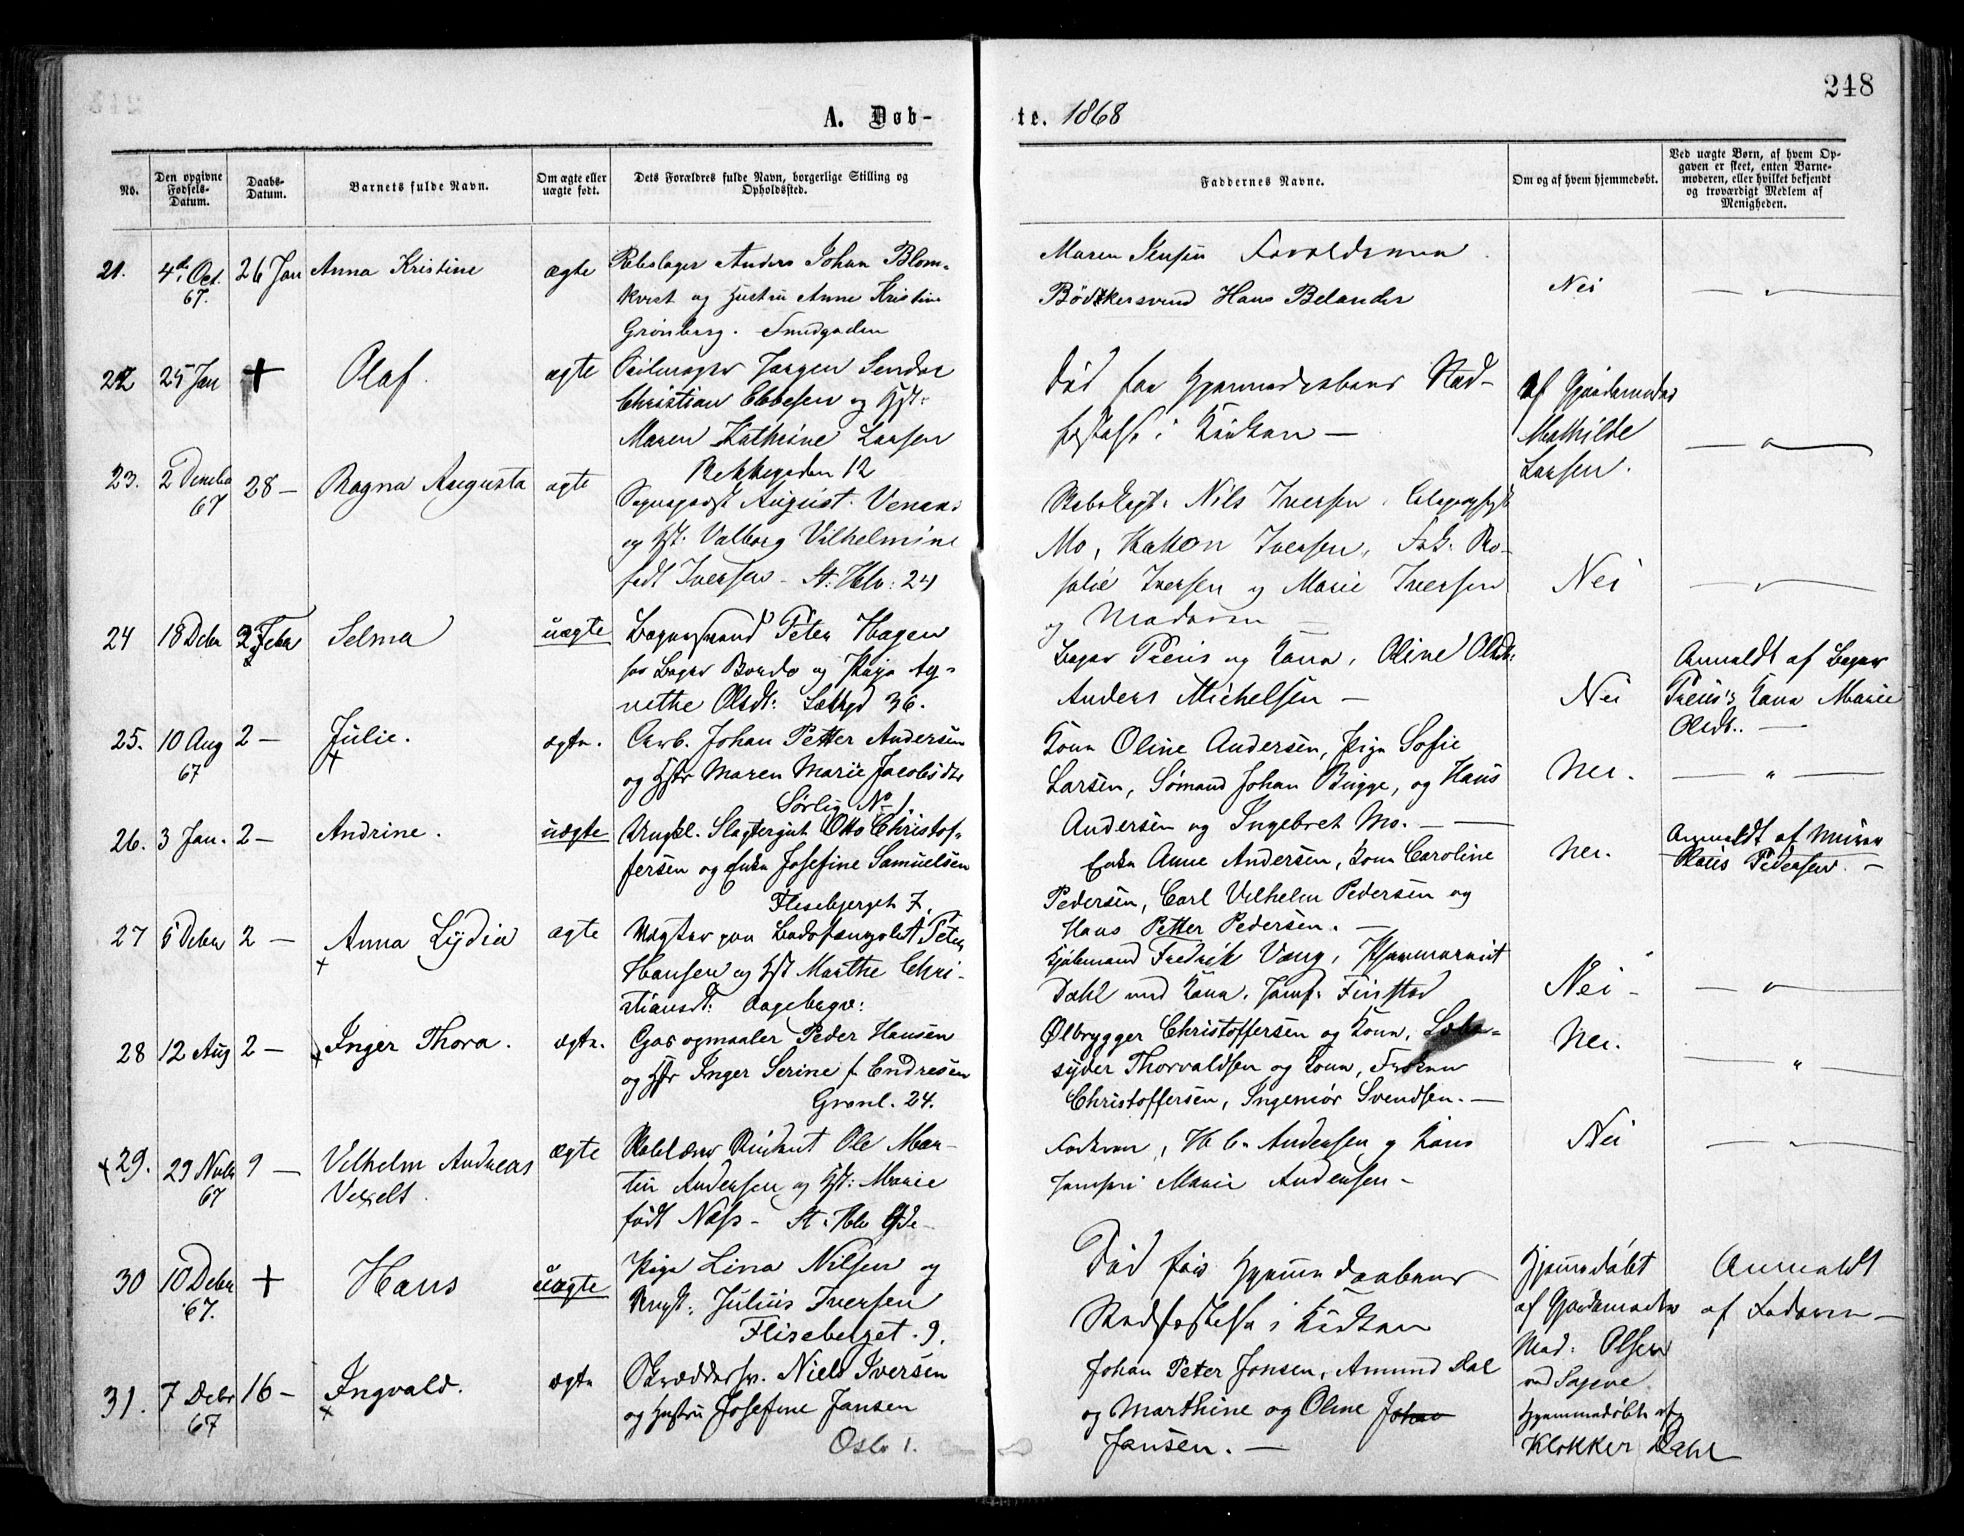 248
A. Døb-
te. 1868
No.
Den opgivne Fødsels-Datum.
Daabs-Datum.
Barnets fulde Navn.
Om ægte eller uægte født.
Dets Forældres fulde Navn, borgerlige Stilling og Opholdssted.
Faddernes Navne.
Om og af hvem hjemmedøbt.
Ved uægte Børn, af hvem Opgaven er skeet, enten Barnemoderen, eller hvilket bekjendt og troværdigt Medlem af Menigheden.
21. 4de Oct. 67. 26 Jan Anna Kristine ægte
Rebslager Anders Johan Blom-
kvist og Hustru Anne Kristine
Grønberg. Smedgaden
Maren Jensen
Bødkersvend Hans Belander
Nei
22 25 Jan + Olaf. ægte
Seilmager Jørgen
Christian Ebbesen og Hst:
Maren Kathrine Larsen
Rekkegaden 12
Død før Hjemmedaabens Stad-
fæstelse i Kirken —
af Gjordemoder
Mathilde
Larsen.
23. 2 Decebr 67 28 — Ragna Augusta ægte
August
og Hst: Valborg Vilhelmine
født Iversen — St: Hlv: 24
Nils Iversen
Mo, Hakon Iversen, Frk: Ro-
salie Iversen og Marie Iversen
og Moderen —
Nei
24 18 Debr 2 Febr Selma uægte
Bagersvend Peter Hagen
hos Bager Borde og Pige Ag-
nethe Olsdt: Lakkgd 36.
Bager Preus og Kone, Oline Olsdt:
Anders Michelsen —
Nei
Anmeldt af Bager
Preus's Kone Marie
Olsdt. —
25. 10 Aug 67 2 — Julie. + ægte.
Arb. Johan Petter Andersen
og Hstr Maren Marie Jacobsdtr
Sørlig No 1.
Kone Oline Andersen, Pige Sofie
Larsen, Sømand Johan Bugge, og Hans
Andersen og Ingebret Mo. —
Nei.
26. 3 Jan. 2 — Andrine. uægte
Ungkl. Slagtergut Otto Christof-
fersen og Enke Josefine Samuelsen
Flisebjerget 7.
Enke Anne Andersen, Kone Caroline
Pedersen, Carl Vilhelm Pedersen og
Hans Petter Pedersen. —
Nei.
Anmeldt af Murer
Pedersen. —
27 5 Debr 2 — Anna Lydia + ægte
Vægter paa Bodsfængslet Peter
Hansen og Hst Marthe Chri-
stiansdt: Aageberg:
Fredrik Væng,
Dahl med Kone, Jomf: Finstad
Nei —
28 12 Aug 2 — Inger Thora. + ægte.
Gasopmaaler Peder Hansen
og Hstr Inger Serine f Endresen
Grønl. 24.
Ølbrygger Christoffersen og Kone,
Thorvaldsen og Kone, Frøken
Christoffersen, Ingeniør Svendsen. —
Nei.
29. 29 Novbr 67 9 — Vilhelm Andreas ægte
Ole Mar-
tin Andersen og Hst: Marie
født Næss —
Faderen, H C. Andersen og Kone
Jomfru Marie Andersen —
Nei
30 10 Debr 67. + Hans uægte
Pige Lina Nilsen og
Ungk: Julius Iversen
Fliseberget. 9.
Død før Hjemmedaabens
Stadfæstelse i Kirken
Hjemmedøbt
af Gjordemoder
Mad: Olsen
ved Sagene
Anmeldt
af Faderen —
31. 7 Debr 67 16 — Ingvald. + ægte
Skræddersv. Niels Iversen
og Hustru Josefine Jansen
Oslo 1.
Johan Peter Jonsen, Amund Dal
og Marthine og Oline Johan
Jansen. —
Hjemmedøbt af
Klokker Dahl